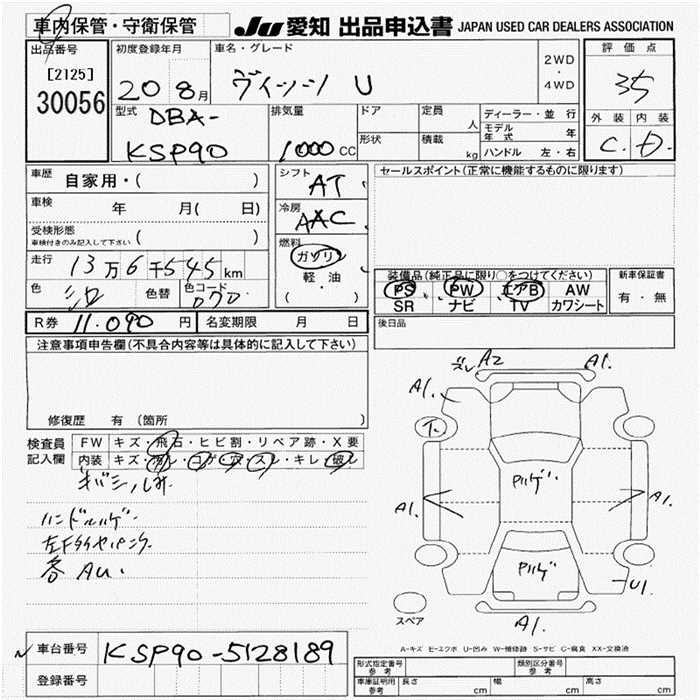 車内保管・守衛保管 JU 愛知 出品申込書 JAPAN USED CAR DEALERS ASSOCIATION
出品番号 初度登録年月 車名・グレード 2WD ・ 4WD 評価点
[2125] 30056 20 8月 ヴィッツ U 3.5
型式 DBA- KSP90 排気量 1000CC ドア 定員 人 ディーラー・並行 外装 内装
形状 積載 kg モデル年式 年 ハンドル 左・右 C D
車歴 自家用・( ) シフト AT セールスポイント(正常に機能するものに限ります)
車検 年 月( 日) 冷房 AAC
受検形態 車検付きのみ記入して下さい ( ) 燃料 ガソリン
走行 13万6千545km 軽油 ( ) 装備品(純正品に限り○をつけてください) 新車保証書
色 シロ 色替 色コード PS PW エアB AW 有・無
SR ナビ TV カワシート
R券 11.090円 名変期限 月 日 後日品
注意事項申告欄(不具合内容等は具体的に記入して下さい)
修復歴 有 (箇所 )
検査員記入欄 FW キズ・飛石・ヒビ割・リペア跡・X要
内装 キズ・汚レ・コゲ・穴・スレ・キレ・破レ
ズレ A2 A1.
A1.
A1. A1.
U1
A1.
スペア
A-キズ E-エクボ U-凹み W-補修跡 S-サビ C-腐食 XX-交換済
車台番号 KSP90-5128189
登録番号
形式指定番号 参考 類別区分番号 参考
車庫証明用 参考 長さ cm 幅 cm 高さ cm